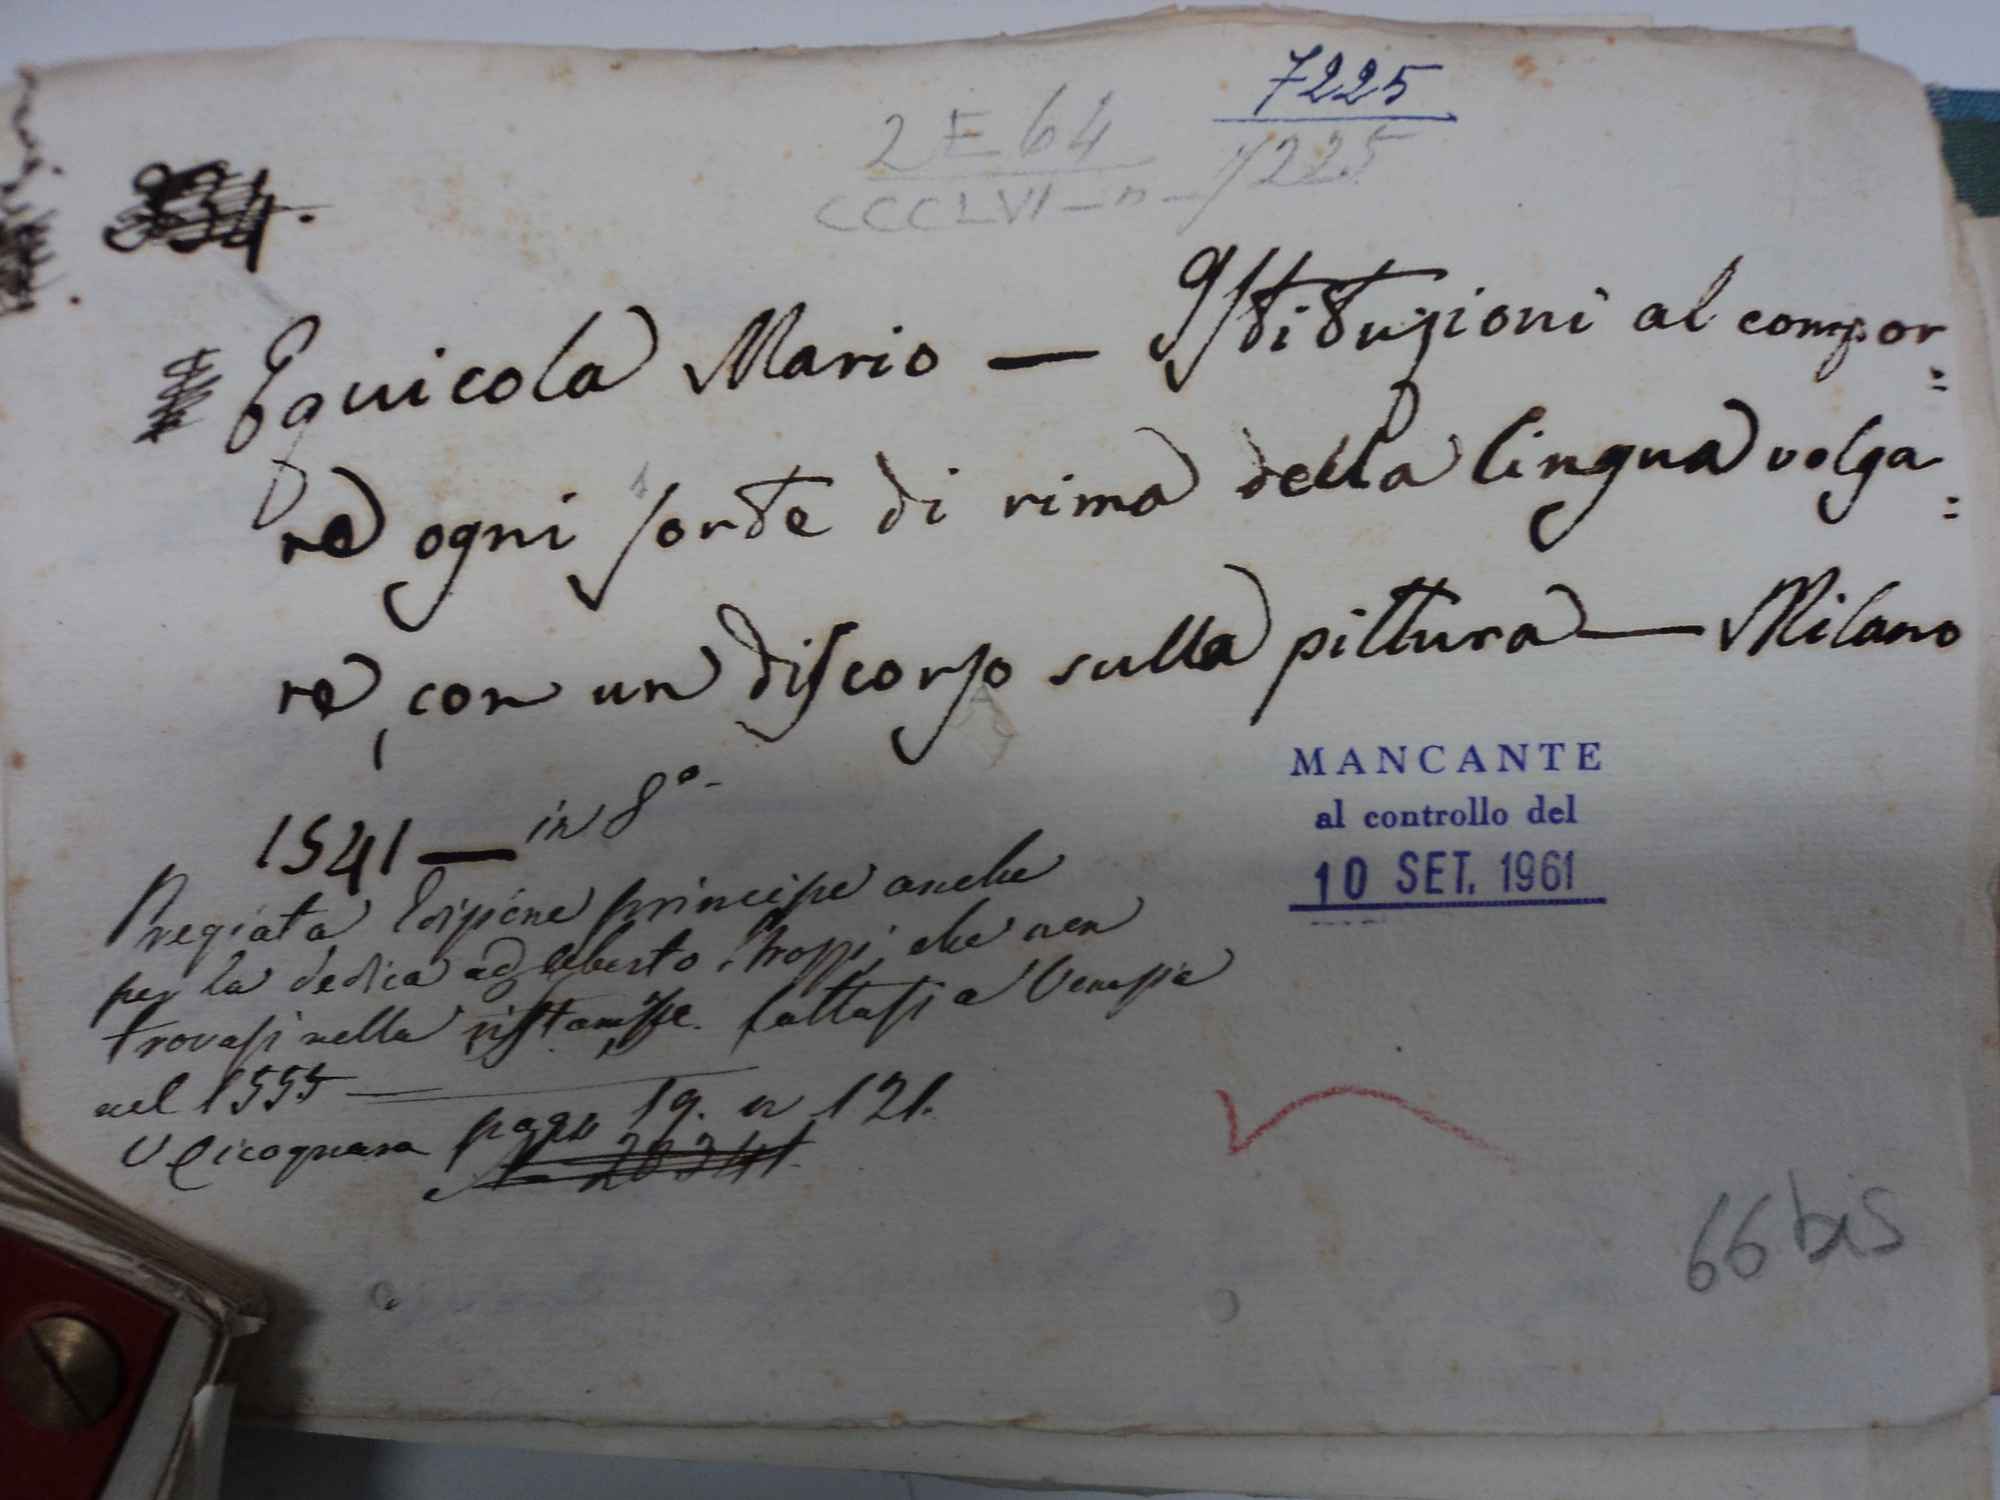 7225
2 E 64
CCCLVI — n — 7225
334.
Equicola Mario — Istituzioni al compor=
re ogni sorte di rima della lingua volga=
re, con un discorso sulla pittura — Milano
1541 — in 8°.
MANCANTE
al controllo del
10 SET. 1961
Pregiata Edizione principe anche
per la dedica ad Uberto Strozzi, che non
trovasi nella ristampa fattasi a Venezia
nel 1555 —
V Cicognara pag. 19. n 121.
66 bis